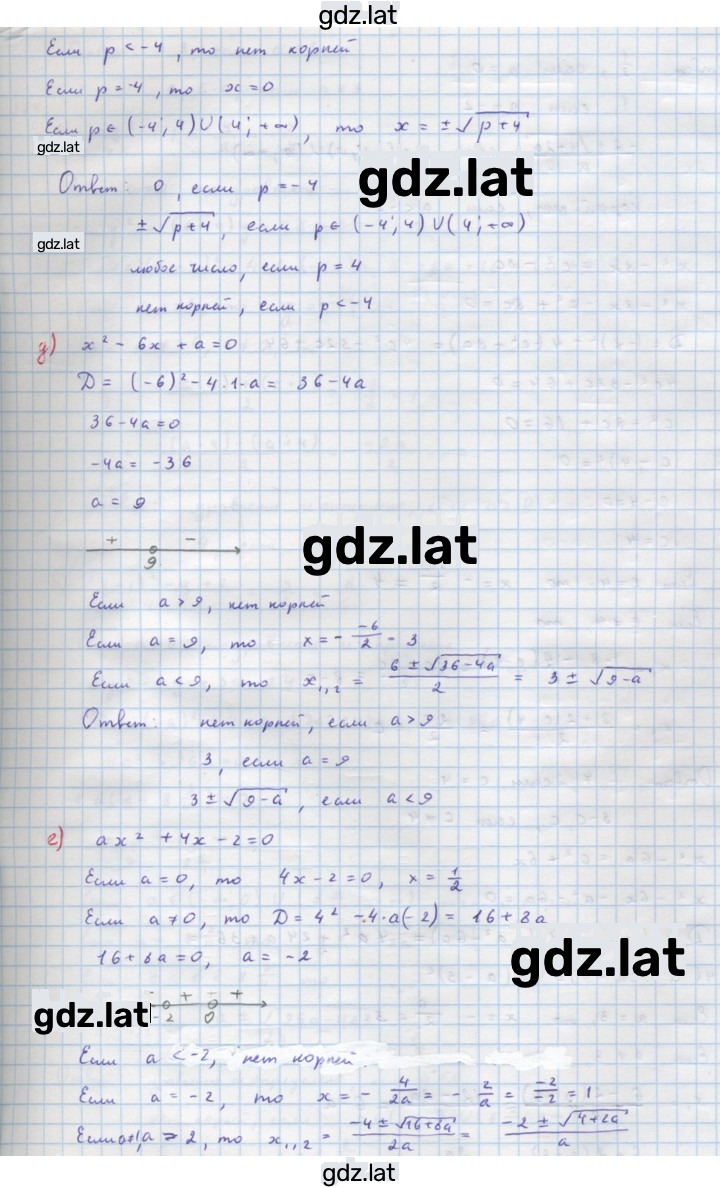 gdz.lat
Если p < -4, то нет корней
Если p = -4, то x = 0
Если p ∈ (-4; 4) ∪ (4; +∞), то x = ±√(p+4)
gdz.lat
Ответ: 0, если p = -4
gdz.lat
±√(p+4), если p ∈ (-4; 4) ∪ (4; +∞)
gdz.lat
любое число, если p = 4
нет корней, если p < -4
д) x² - 6x + a = 0
D = (-6)² - 4·1·a = 36 - 4a
36 - 4a = 0
-4a = -36
a = 9
+ -
9
gdz.lat
Если a > 9, нет корней
Если a = 9, то x = - -6/2 - 3
Если a < 9, то x₁,₂ = (6 ± √(36-4a))/2 = 3 ± √(9-a)
Ответ: нет корней, если a > 9
3, если a = 9
3 ± √(9-a), если a < 9
е) ax² + 4x - 2 = 0
Если a = 0, то 4x - 2 = 0, x = 1/2
Если a ≠ 0, то D = 4² - 4·a(-2) = 16 + 8a
16 + 8a = 0, a = -2
gdz.lat
+ +
gdz.lat
-2 0
Если a < -2, нет корней
Если a = -2, то x = - 4/2a = - 2/a = -2/-2 = 1
Если a > 2, то x₁,₂ = (-4 ± √(16+8a))/2a = (-2 ± √(4+2a))/a
gdz.lat